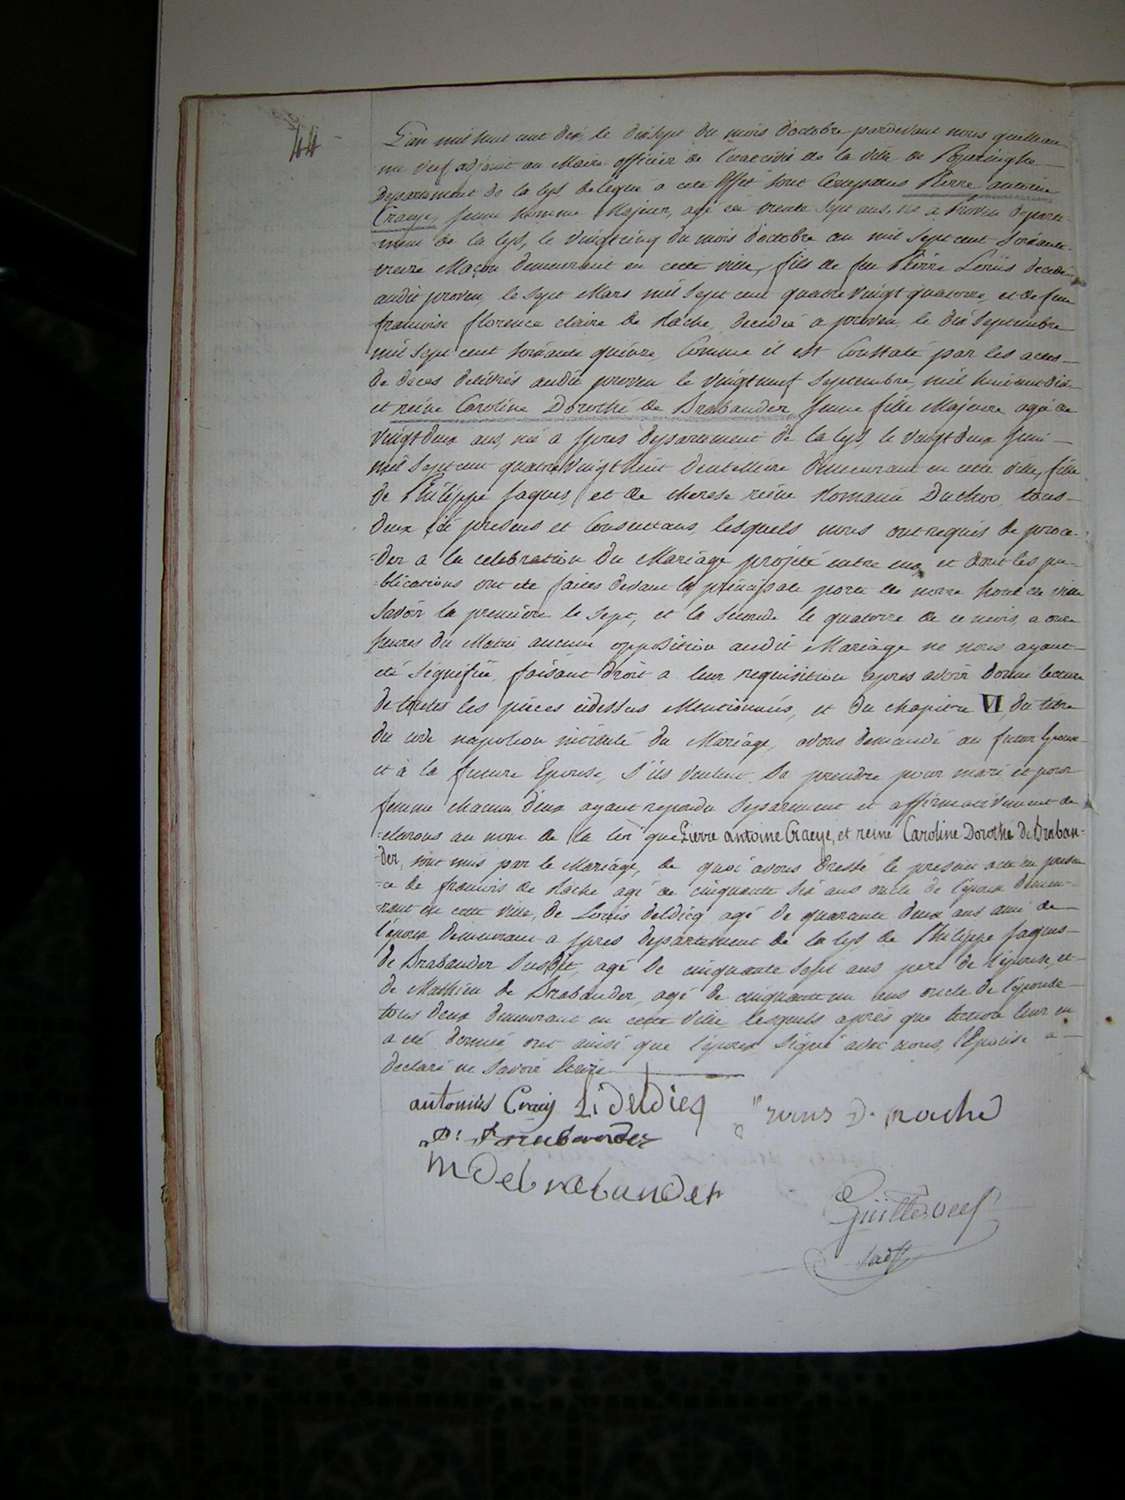 44
L'an mil huit cent dix, le dixsept du mois d'octobre pardevant nous guilleau-
me Veuf adjoint au Maire officier de l'etat civil de la ville de Poperinghe
Departement de la Lys delegué a cete Effet sont Comparus Pierre antoine
Craeye, jeune homme Majeur, agé de trente sept ans, né à Proven departe-
ment de la Lys, le vingtcinq du mois d'octobre an mil sept cent soixante
treize Maçon demeurant en cette ville, fils de feu Pierre Louis decedé
audit proven, le sept Mars mil sept cent quatre vingt quatorze, et de feue
francoise florence claire de Nache, decedée a proven le dix Septembre
mil sept cent soixante quinze, Comme il est Constaté par les actes
de deces delivrés audit proven le vingtneuf Septembre, mil huit cent dix
et reine Caroline Dorothé de Brabander, jeune fille Majeure agé de
vingtdeux ans, né a Ypres departement de la Lys, le vingtdeux juin
mil sept cent quatre vingt huit Dentelliere demeurant en cette ville, fille
de Philippe jaques, et de therese reine Romanie Duclos, tous
deux ici presens et Consentans, lesquels nous ont requis de proce-
-der a la celebration du Mariage projeté entre eux et dont les pu-
-blications ont eté faites devant la principale porte de notre hotel de ville
Savoir la premiere le sept, et la seconde le quatorze de ce mois, a onze
heures du Matin aucune opposition audit Mariage ne nous ayant
eté Signifiée, faisant droit a leur requisition apres avoir donné lecture
de toutes les pieces cidessus Mentionnées, et du chapitre VI, du titre
du code napoleon intitulé du Mariage, avons demandé au futur Epoux
et à la future Epouse, s'ils veulent Se prendre pour mari et pour
femme chacun d'eux ayant repondu Separement et affirmativement de-
-clarons au nom de la loi que Pierre antoine Craeye, et reine Caroline Dorothe de Braban-
-der, sont unis par le Mariage, de quoi avons dressé le present acte en presen-
-ce de francois de Nache agé de cinquante six ans oncle de l'epoux demeu-
rant en cette ville, de Louis deldicq agé de quarante deux ans ami de
l'epoux demeurant a Ypres departement de la Lys de Philippe jaques
de Brabander Susdit, agé de cinquante sept ans pere de l'epouse, et
de Mathieu de Brabander, agé de cinquante un ans oncle de l'epouse
tous deux demeurant en cette ville lesquels apres que lecture leur en
a eté donnée ont ainsi que l'epoux Signé avec nous, l'Epouse a
declaré ne Savoir Ecrire
antonius Craeij L: deldicq frans De nache
P: J: Debrabander
M Debrabander
Guille: Veuf
adjt